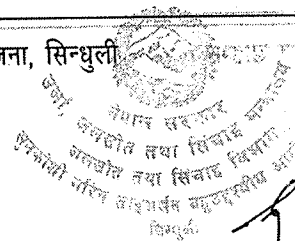 जना, सिन्धुली
नेपाल सरकार
उर्जा, जलस्रोत तथा सिंचाइ मन्त्रालय
जलस्रोत तथा सिंचाइ विभाग
सुनकोशी मरिन डाइभर्सन बहुउद्देश्यीय आयो
सिन्धुली